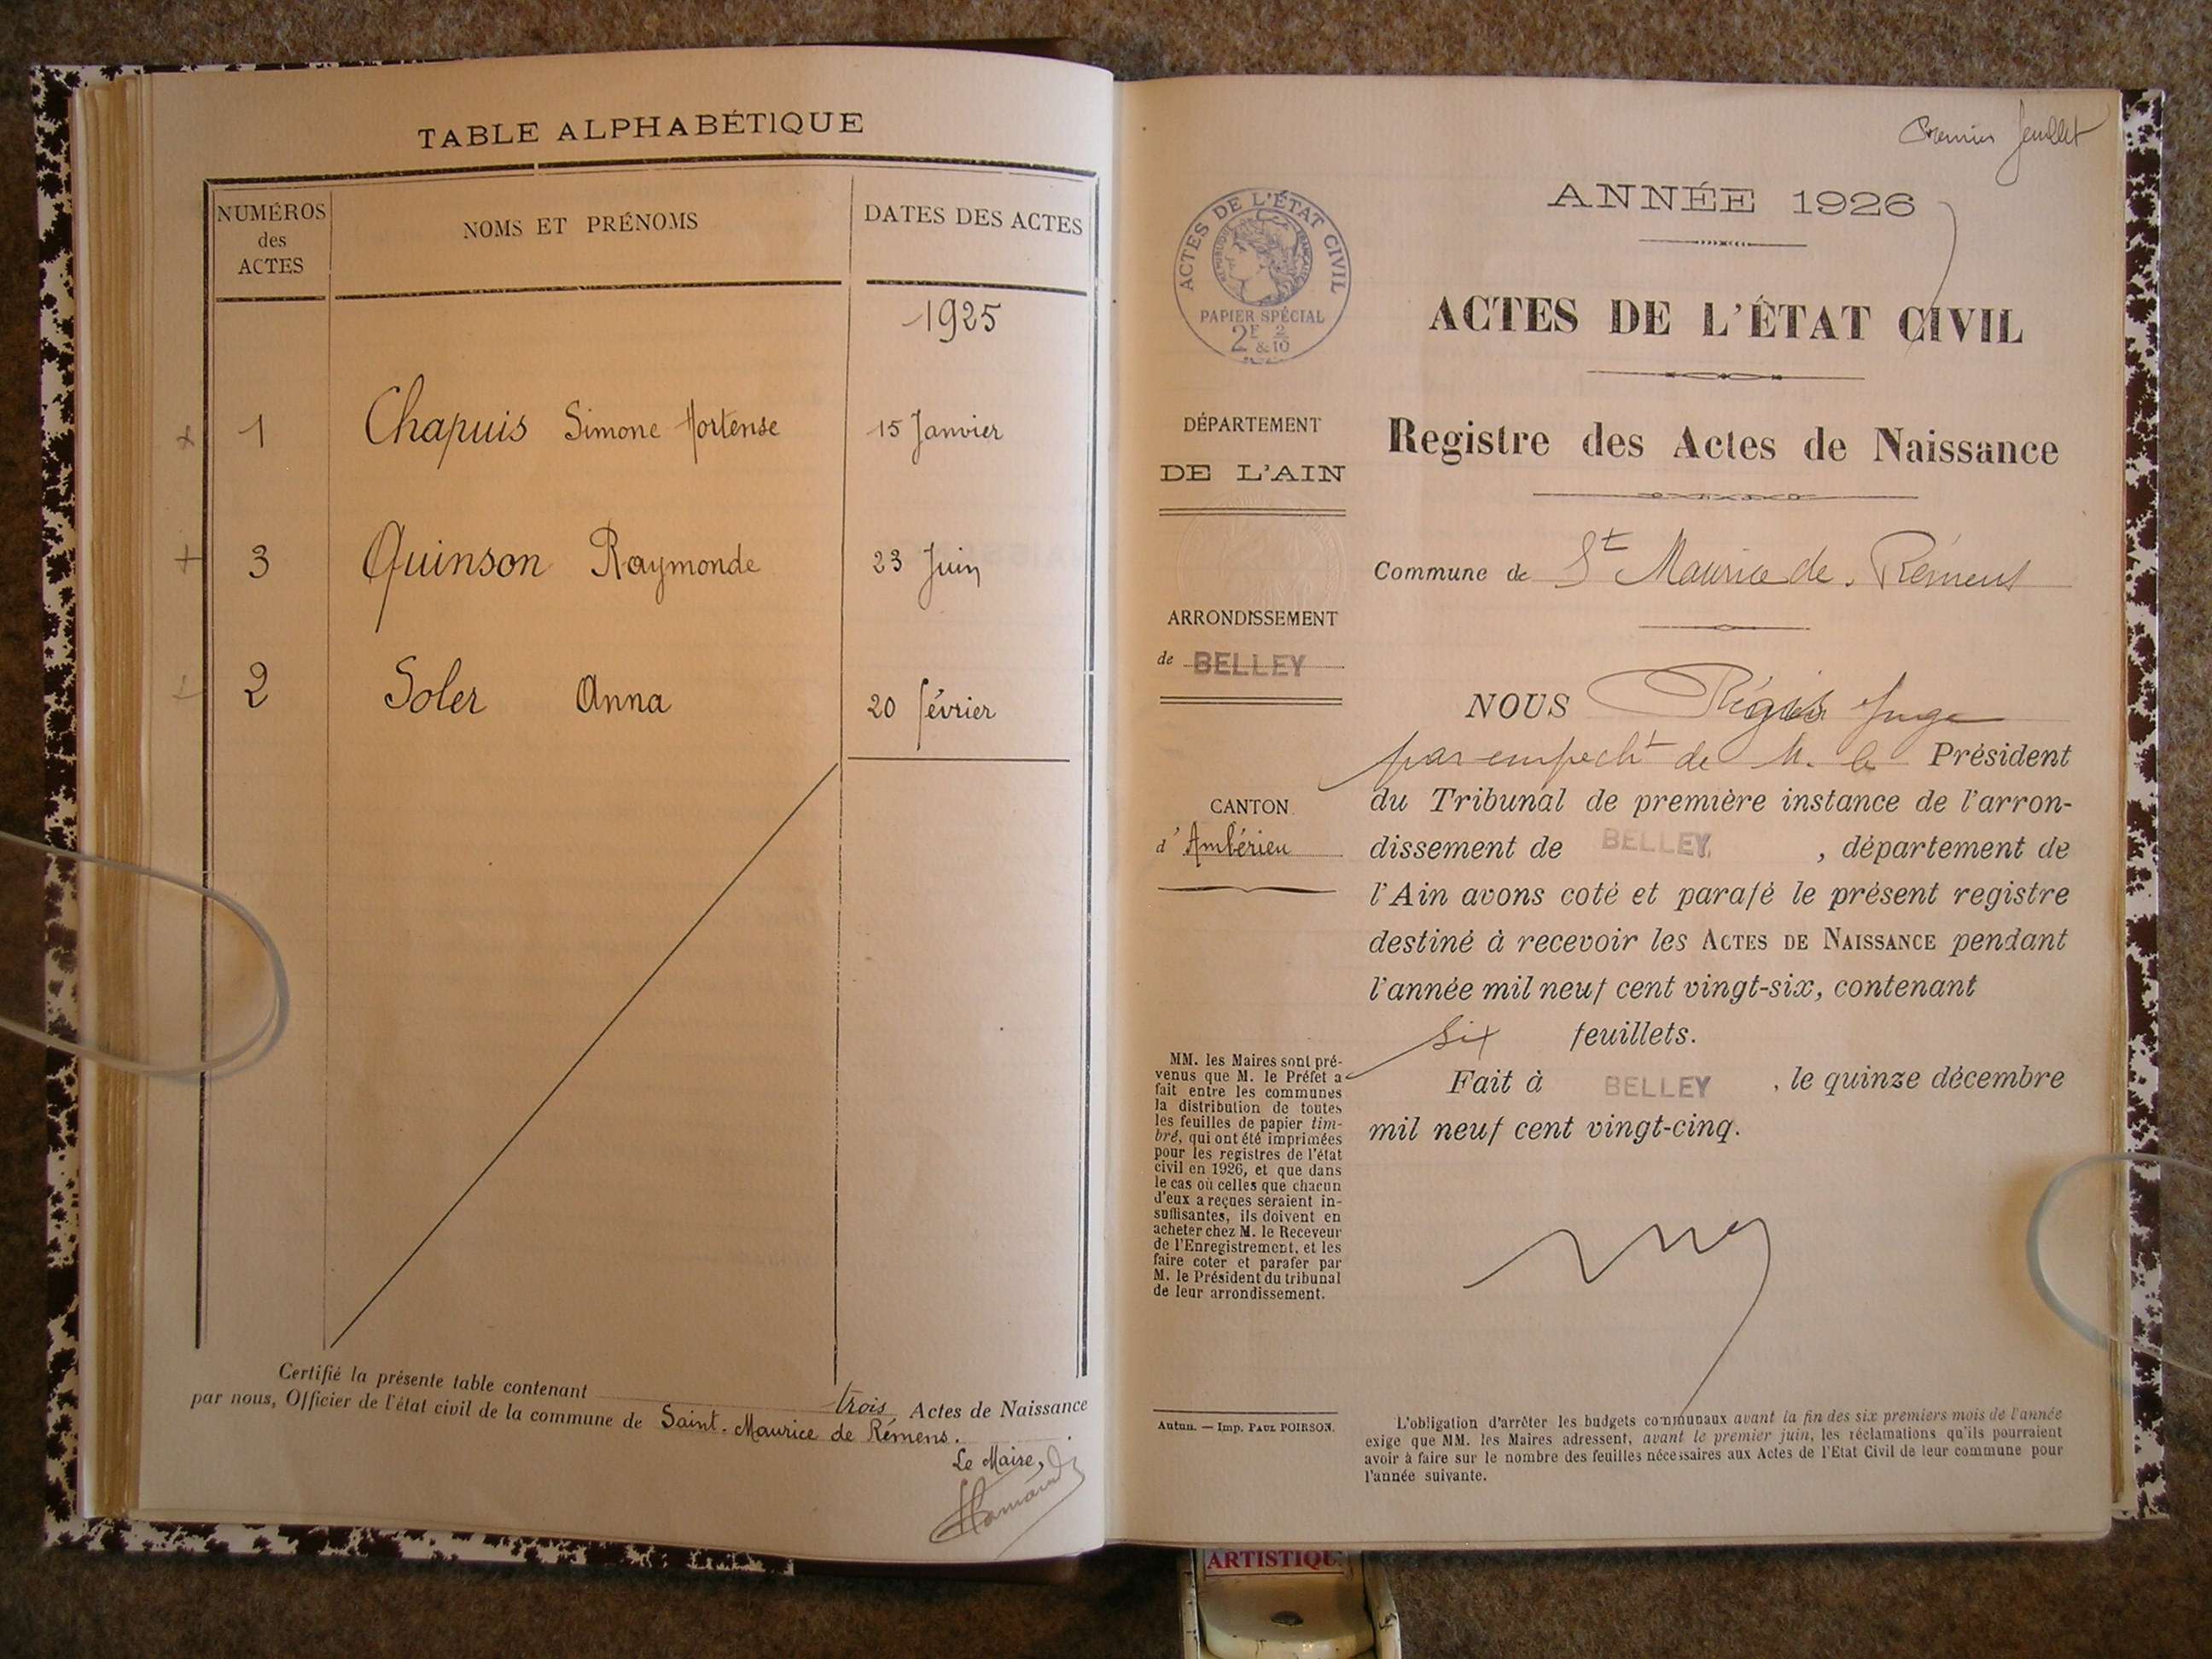 TABLE ALPHABÉTIQUE
NUMÉROS
des
ACTES
NOMS ET PRÉNOMS
DATES DES ACTES
1925
1 Chapuis Simone Hortense 15 Janvier
3 Quinson Raymonde 23 Juin
2 Soler Anna 20 février
Certifié la présente table contenant trois Actes de Naissance
par nous, Officier de l'état civil de la commune de Saint-Maurice de Rémens.
Le Maire,
Premier feuillet
ANNÉE 1926
ACTES DE L'ÉTAT CIVIL
RÉPUBLIQUE FRANÇAISE
PAPIER SPÉCIAL
2F 2
&10
ACTES DE L'ÉTAT CIVIL
DÉPARTEMENT
DE L'AIN
ARRONDISSEMENT
de BELLEY
CANTON
d'Ambérieu
MM. les Maires sont pré-
venus que M. le Préfet a
fait entre les communes
la distribution de toutes
les feuilles de papier tim-
bré, qui ont été imprimées
pour les registres de l'état
civil en 1926, et que dans
le cas où celles que chacun
d'eux a reçues seraient in-
suffisantes, ils doivent en
acheter chez M. le Receveur
de l'Enregistrement, et les
faire coter et parafer par
M. le Président du tribunal
de leur arrondissement.
Autun. — Imp. PAUL POIRSON.
Registre des Actes de Naissance
Commune de St Maurice de Rémens
NOUS Régis Juge
par empecht de M. le Président
du Tribunal de première instance de l'arron-
dissement de BELLEY, département de
l'Ain avons coté et parafé le présent registre
destiné à recevoir les ACTES DE NAISSANCE pendant
l'année mil neuf cent vingt-six, contenant
six feuillets.
Fait à BELLEY, le quinze décembre
mil neuf cent vingt-cinq.
L'obligation d'arrêter les budgets communaux avant la fin des six premiers mois de l'année
exige que MM. les Maires adressent, avant le premier juin, les réclamations qu'ils pourraient
avoir à faire sur le nombre des feuilles nécessaires aux Actes de l'Etat Civil de leur commune pour
l'année suivante.
ARTISTIQU